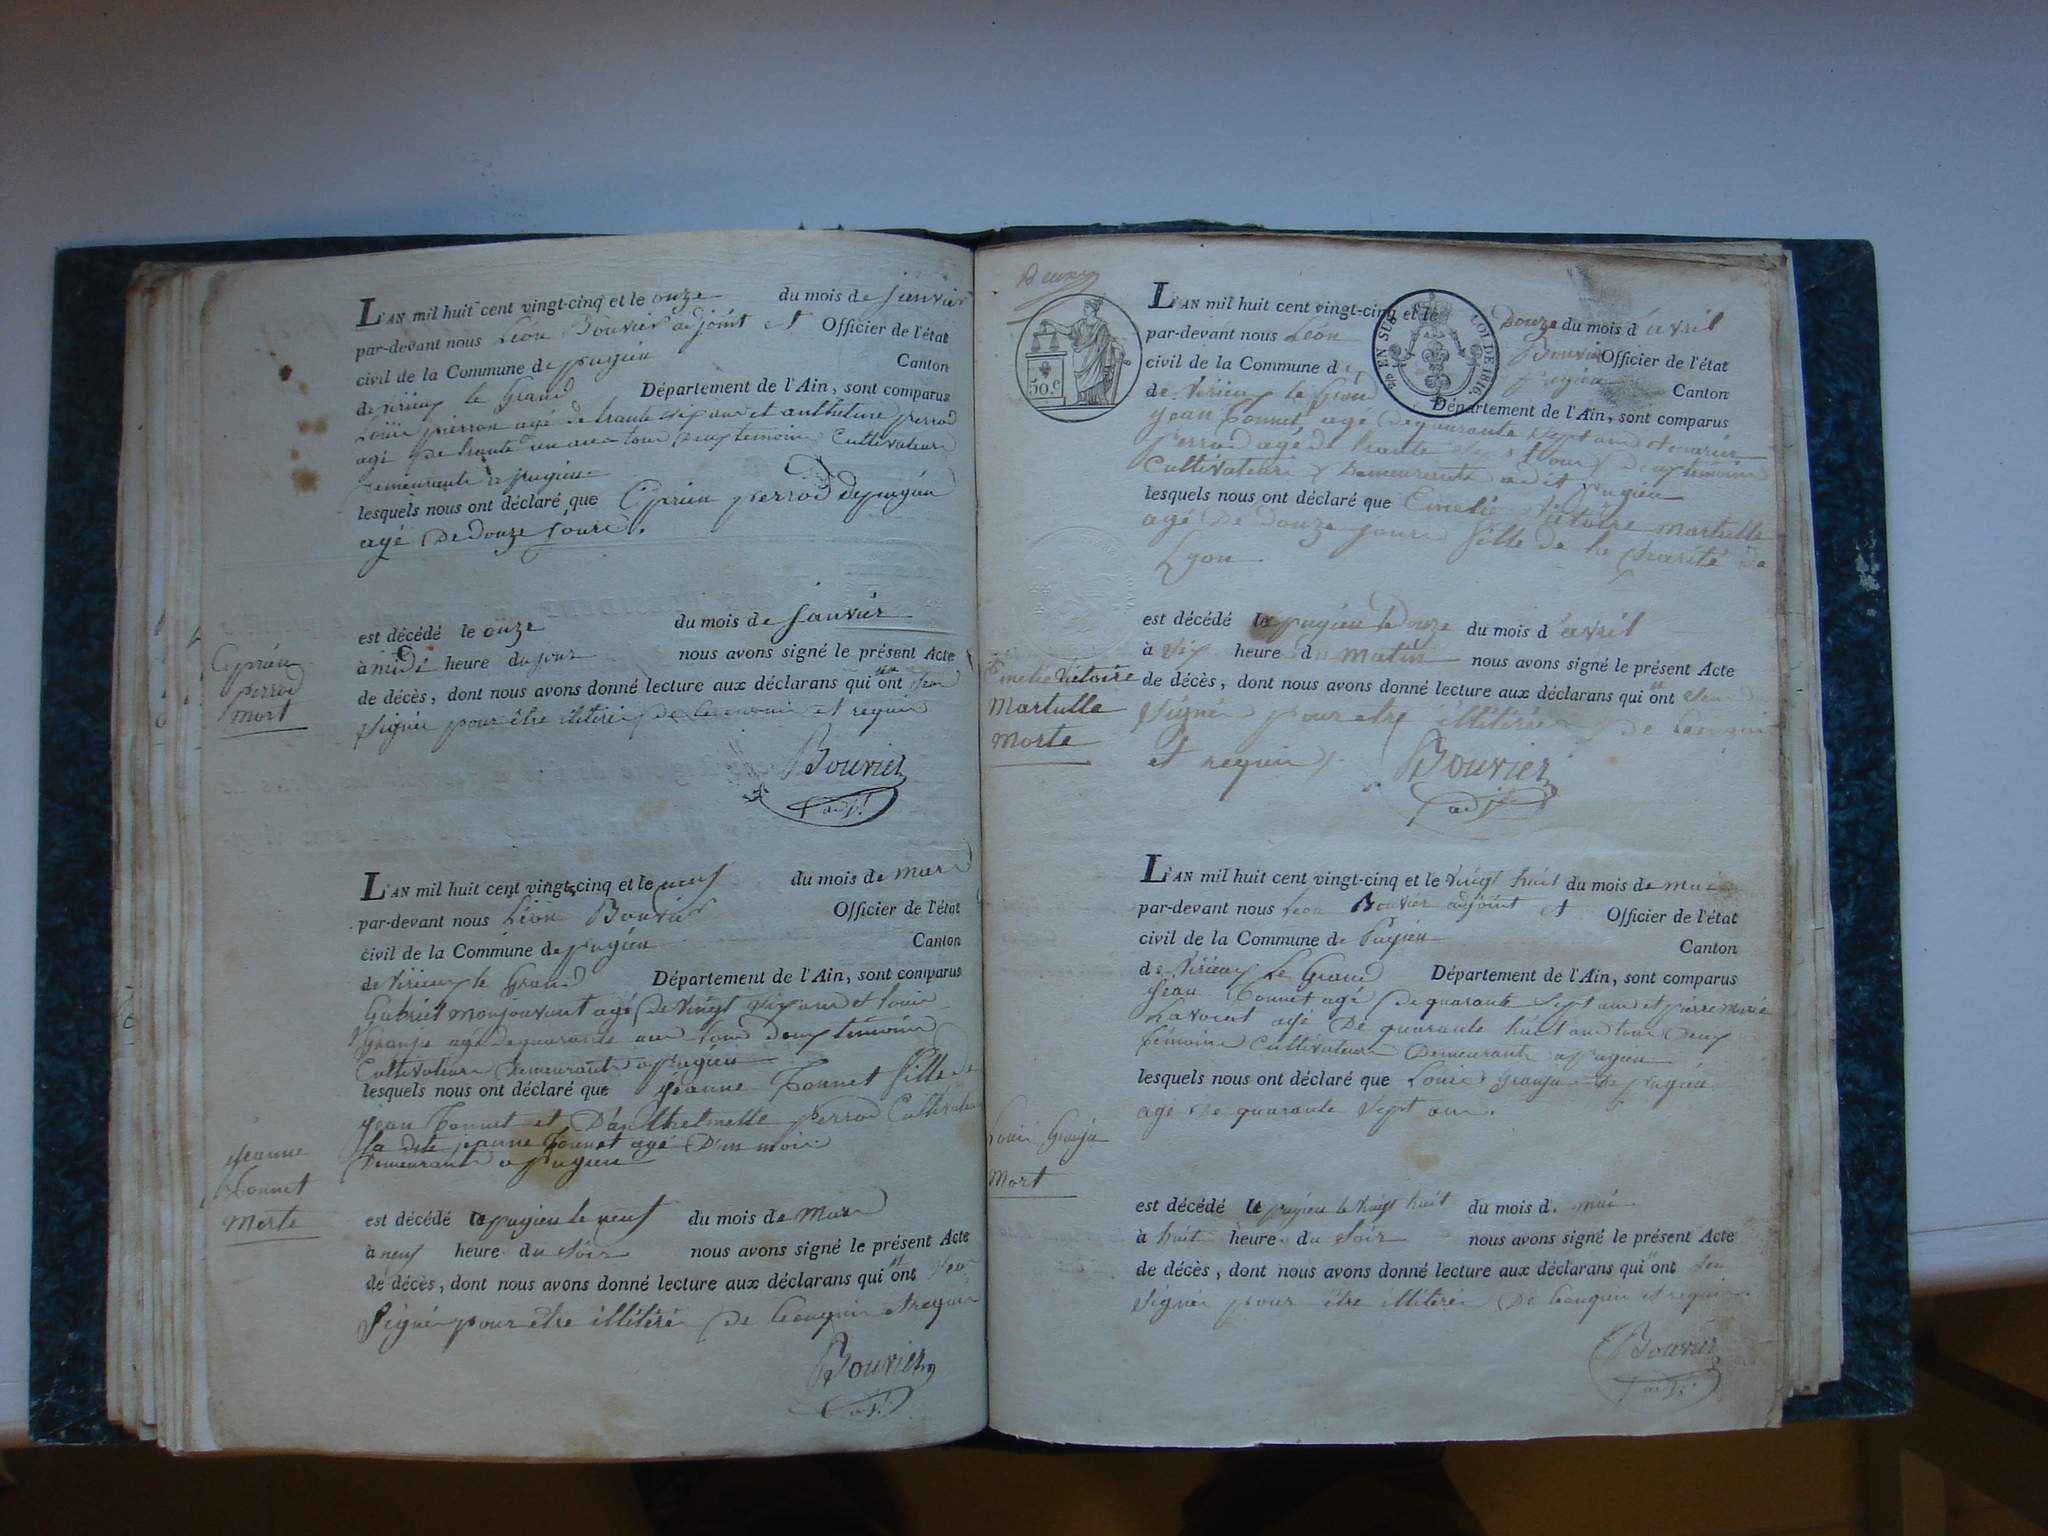 L'AN mil huit cent vingt-cinq et le onze du mois de Janvier
par-devant nous Léon Bouvier adjoint et Officier de l'état
civil de la Commune de pugieu Canton
de Virieux le Grand Département de l'Ain, sont comparus
agé de trante un ans tous deux temoins Cultivateurs
demeurants a pugieu
lesquels nous ont déclaré que Ciprien perrod de pugieu
agé De Douze jours.
est décédé le onze du mois de Janvier
à midi heure du jour nous avons signé le présent Acte
de décès, dont nous avons donné lecture aux déclarans qui ont
signér pour être illitéré de ce et requis
Ciprien
perrod
mort
Bouvier
adjt
L'AN mil huit cent vingt-cinq et le neuf du mois de mars
par-devant nous Léon Bouvier Officier de l'état
civil de la Commune de pugieu Canton
de Virieux le Grand Département de l'Ain, sont comparus
Gabriel monjouvant agé de vingt six ans et louis
Granju agé de quarante ans tous deux temoins
Cultivateurs Demeurants a pugieu
lesquels nous ont déclaré que jeanne Tonnet fille de
jean Tonnet et D'anthelmette perrod Cultivateurs
la dite jeanne Tonnet agé D'un mois
Demeurants a pugieu
jeanne
Tonnet
morte
est décédé le pugieu le neuf du mois de mars
à neuf heure du soir nous avons signé le présent Acte
de décès, dont nous avons donné lecture aux déclarans qui ont
Signér pour être illitéré De et requis
Bouvier
adjt
Deux
50.c
EN SUS LOI DE 1816.
L'AN mil huit cent vingt-cinq et le Douze du mois d'avril
par-devant nous Léon Bouvier Officier de l'état
civil de la Commune de pugieu Canton
de Virieux le Grand Département de l'Ain, sont comparus
jean Tonnet agé De quarante sept ans et
perrod agé de trante sept ans deux temoins
Cultivateurs Demeurants pugieu
lesquels nous ont déclaré que Emelie Victoire martulle
agé De Douze jours fille de la Charité de
Lyon
est décédé le pugieu le Douze du mois d'avril
à six heure du matin nous avons signé le présent Acte
de décès, dont nous avons donné lecture aux déclarans qui ont
signér pour etre illitérér De
et requis
Emelie Victoire
martulle
morte
Bouvier
adjt
L'AN mil huit cent vingt-cinq et le vingt huit du mois de mai
par-devant nous Léon Bouvier adjoint et Officier de l'état
civil de la Commune de Pugieu Canton
de Virieux Le Grand Département de l'Ain, sont comparus
jean Tonnet agé De quarante sept ans et pierre marie
Lavocat agé De quarante huit ans tous deux
témoins Cultivateurs Demeurants a pugieu
lesquels nous ont déclaré que Louis Granju de pugieu
agé de quarante sept ans.
Louis Granju
mort
est décédé le pugieu le vingt huit du mois d. mai
à huit heure du soir nous avons signé le présent Acte
de décès, dont nous avons donné lecture aux déclarans qui ont
signér pour être illitéré De et requis
Bouvier
adjt